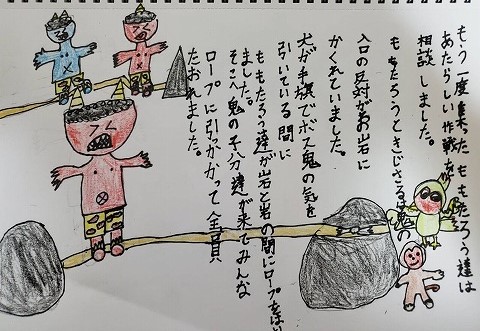 もう一度集ったももたろう達は
あたらしい作戦を
相談しました。
ももたろうときじさるは鬼の
入口の反対がわ岩に
かくれていました。
犬が手旗でボス鬼の気を
引いている間に
ももたろう達が岩と岩の間にロープをはい
ました。
そこへ鬼の子分達が来てみんな
ロープに引がかって全員
たおれました。